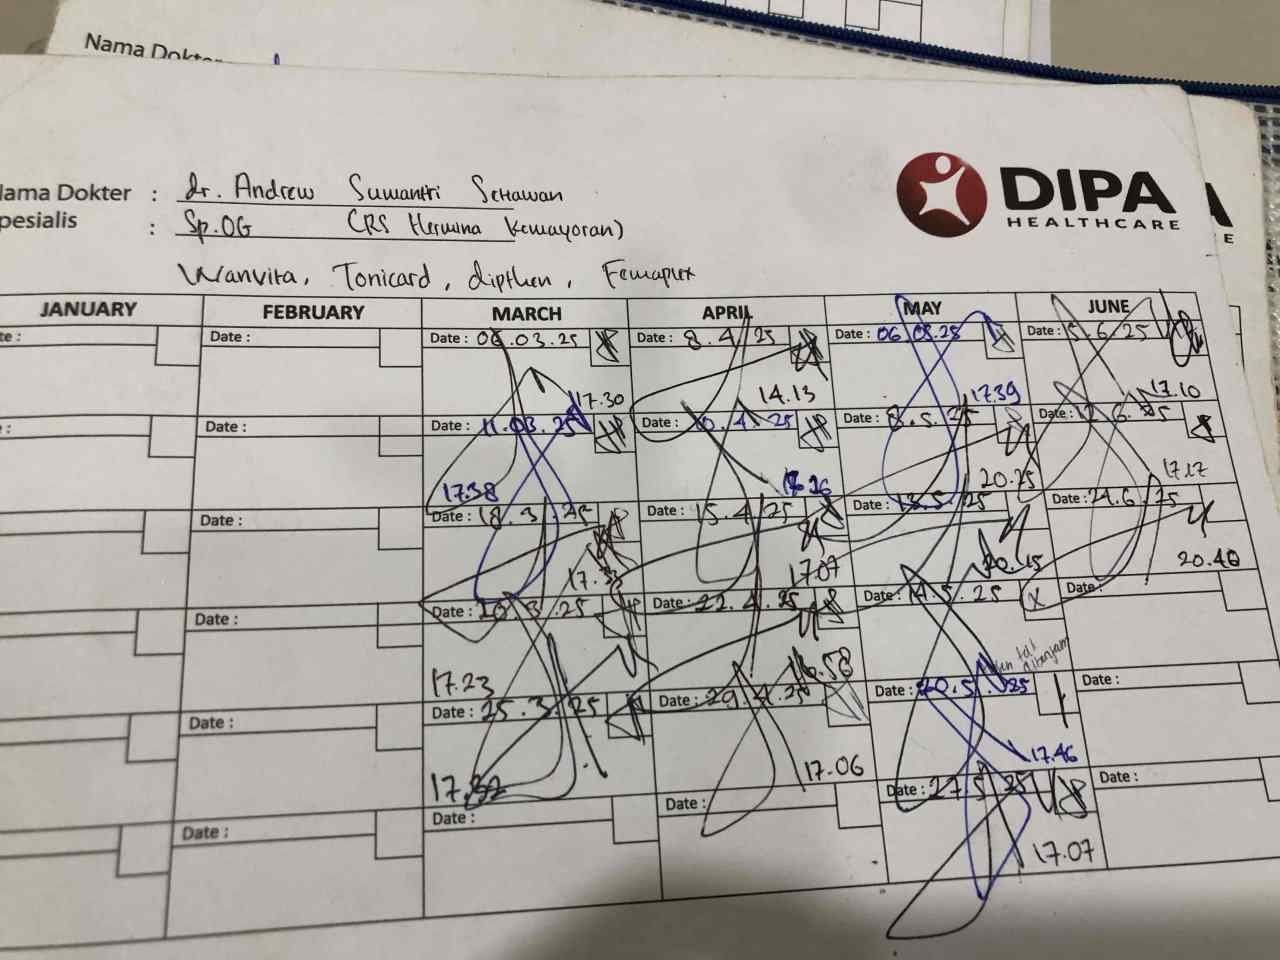 Nama Dokter
Nama Dokter : dr. Andrew Suwantri Setiawan
DIPA
HEALTHCARE
Spesialis : Sp.OG (RS Hermina Kemayoran)
Wanvita, Tonicard, dipthen, Femaplex
JANUARY FEBRUARY MARCH APRIL MAY JUNE
Date : Date : 06.03.25 Date : 8.4.25 Date : 06.05.25 Date : 5.6.25
17.30 14.13 17.39 17.10
Date : Date : 11.03.25 Date : 10.4.25 Date : 8.5.25 Date : 12.6.25
17.38 20.25 17.17
Date : Date : 18.3.25 Date : 15.4.25 Date : 13.5.25 Date : 24.6.25
17.07 20.15 20.40
Date : Date : 20.3.25 Date : 22.4.25 Date : 14.5.25 x Date :
17.23 16.58
Date : Date : 25.3.25 Date : 29.4.25 Date : 20.5.25 Date :
17.32 17.06 17.46
Date : Date : Date : Date : 27.5.25 Date :
17.07